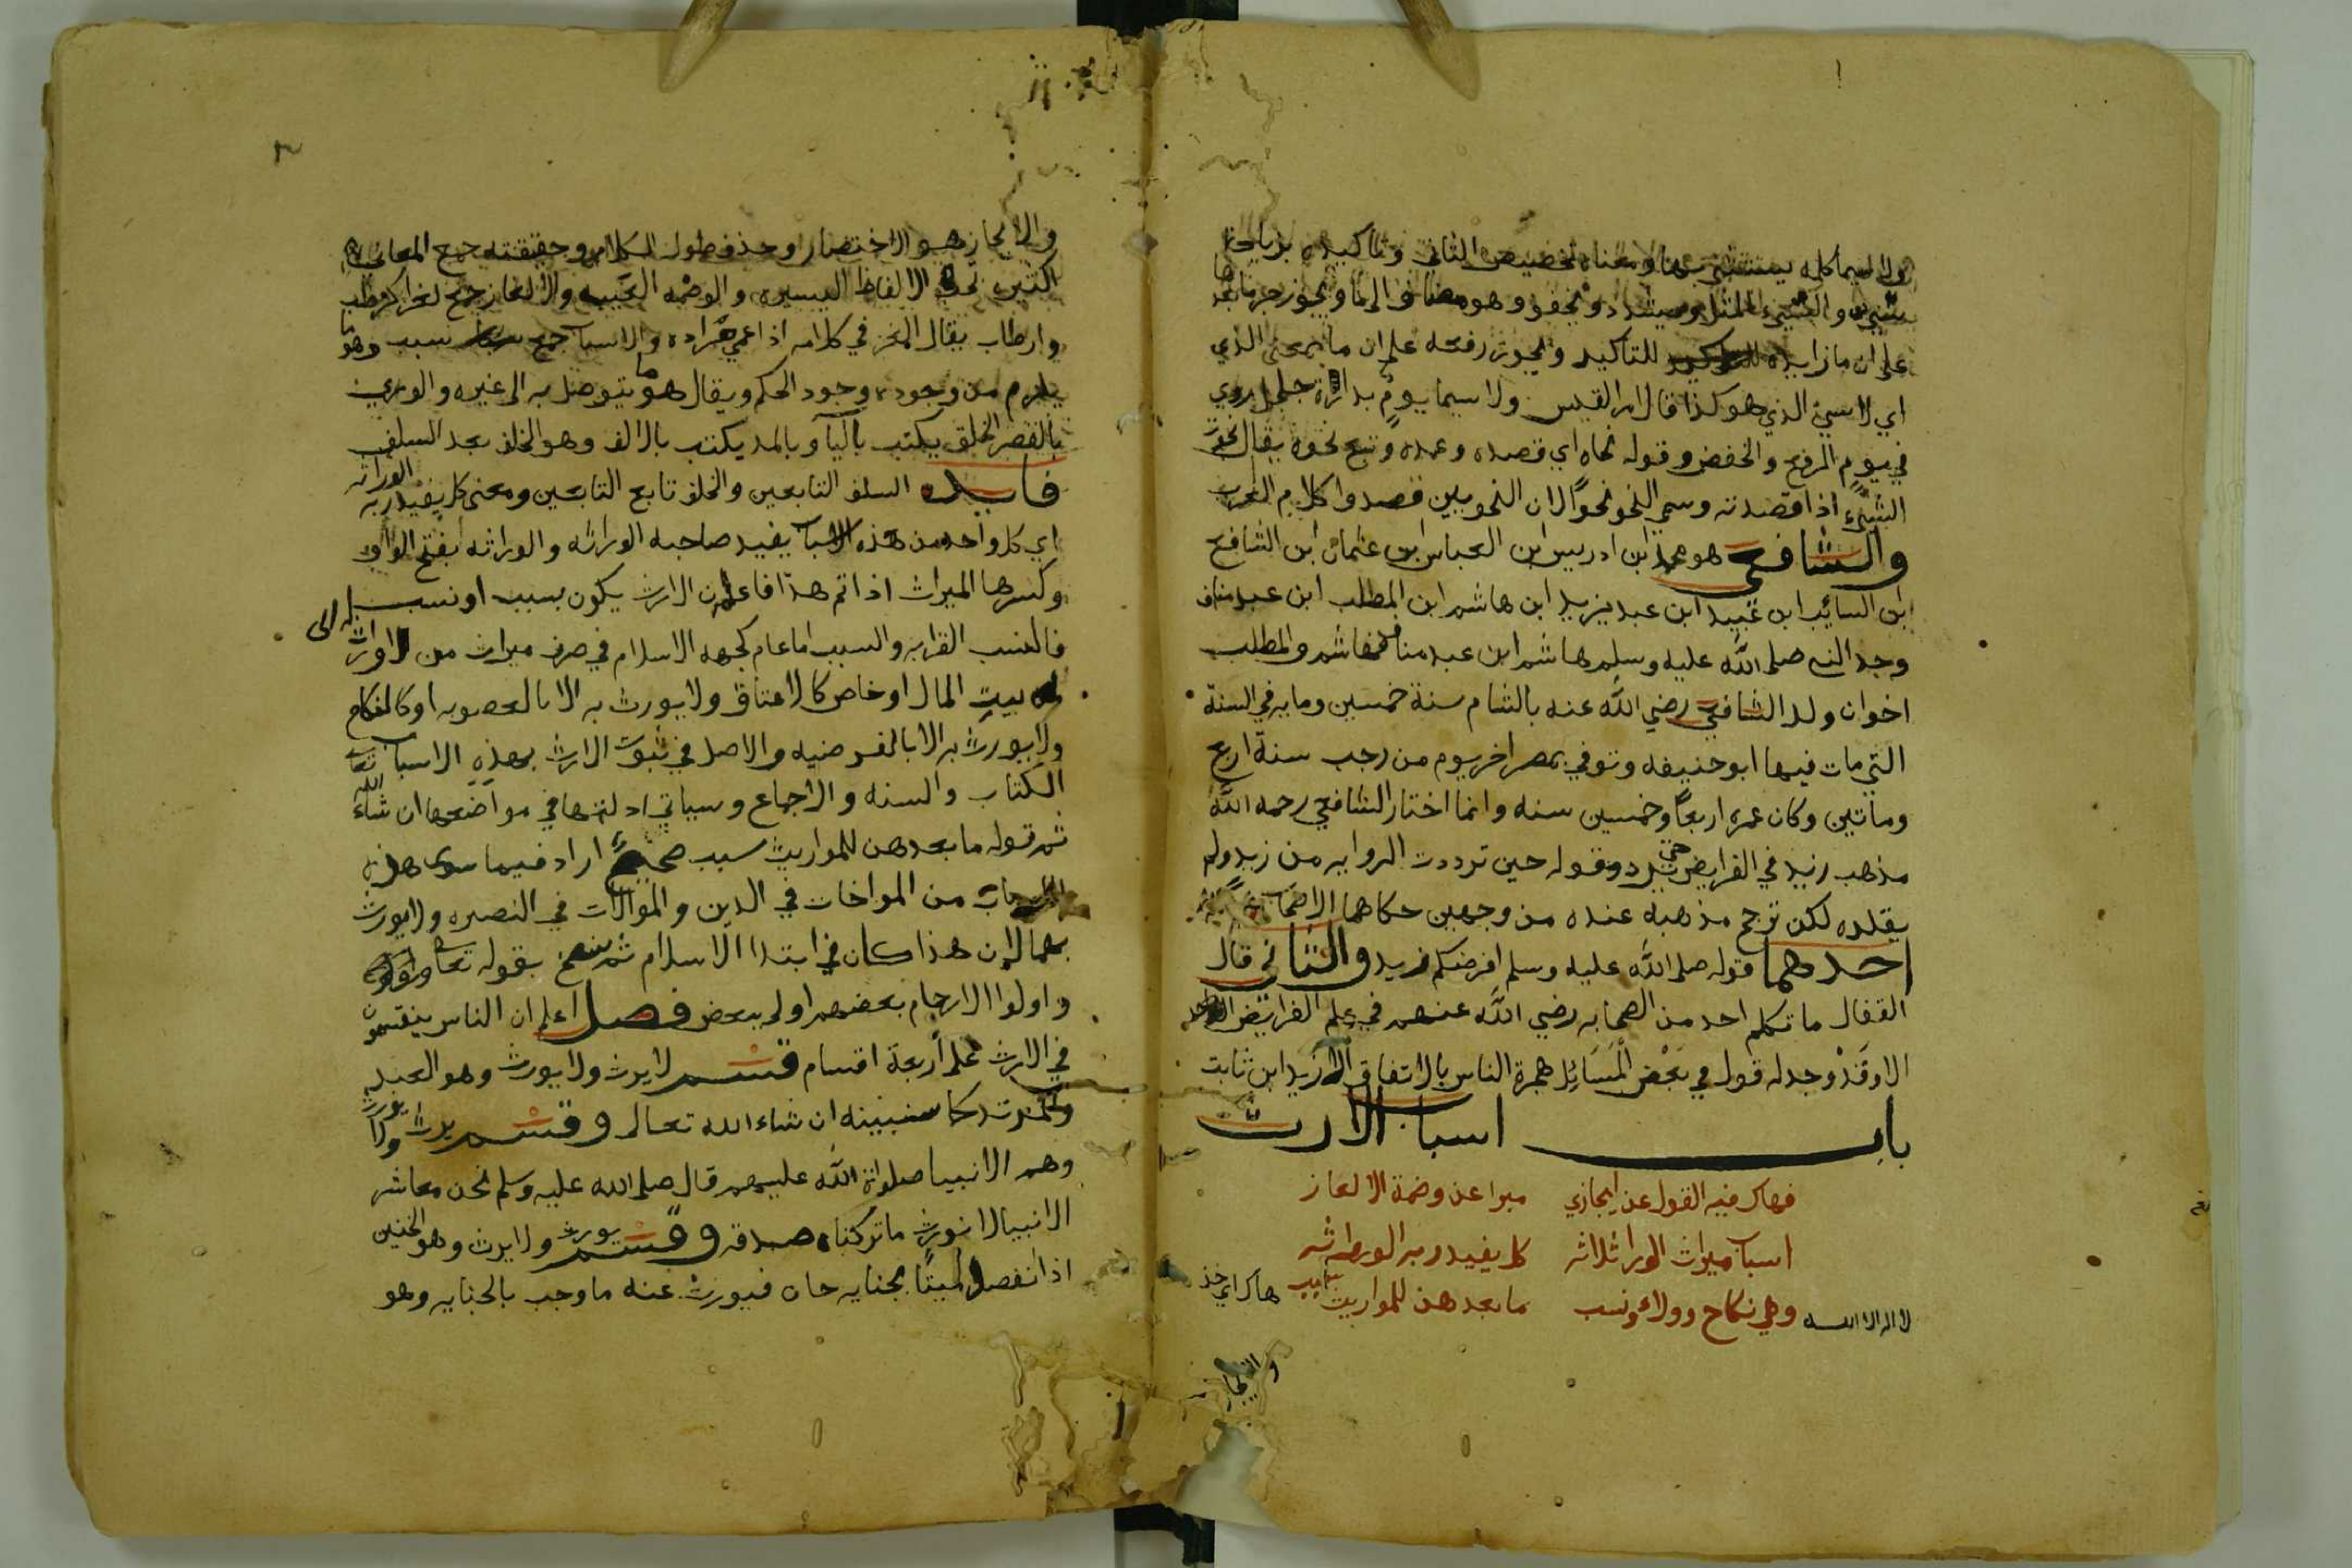 ولا سيما كلمه يستثنى بها ومعناه تخصيص الثاني وتاكيده بزيادة
والشيء المثل ويشدد ويخفف وهو مضاف الى ما ويجوز جر ما بعدها
على ان ما زايده للتاكيد ويجوز رفعه على ان ما بمعنى الذي
اي لاسيئ الذي هو كذا قال امر القيس ولا سيما يوم بدارة جلجل روي
في يوم الرفع والخفض وقوله نحاه اي قصده وعمده وتبع نحوه يقال نحوت
الشيء اذا قصدته وسمي النحو نحوا لان النحويين قصدوا كلام العرب
والشافعي هو محمد ابن ادريس ابن العباس ابن عثمان ابن الشافع
ابن السائب ابن عبيد ابن عبد يزيد ابن هاشم ابن المطلب ابن عبد مناف
وجد النبي صلى الله عليه وسلم هاشم ابن عبد مناف فهاشم والمطلب
اخوان ولد الشافعي رضي الله عنه بالشام سنة خمسين ومايه في السنة
التي مات فيها ابو حنيفه وتوفي بمصر اخر يوم من رجب سنة اربع
وماتين وكان عمره اربعا وخمسين سنه وانما اختار الشافعي رحمه الله
مذهب زيد في الفرايض حتى تردد وقوله حين ترددت الروايه من زيد ولم
يقلده لكن ترجح مذهبه عنده من وجهين حكاهما الاصحاب
احدهما قوله صلى الله عليه وسلم افرضكم زيد والثاني قال
القفال ما تكلم احد من الصحابه رضي الله عنهم في علم الفرائض
الا وقد وجد له قول في بعض المسائل هجره الناس بالاتفاق الا زيد ابن ثابت
باب اسباب الارث
فهاك فيه القول عن ايجازي مبرا عن وصمة الالغاز
اسباب ميراث الورا ثلاثه كل يفيد ربه الوراثه
لا اله الا الله وهي نكاح وولاء ونسب ما بعدهن للمواريث سبب هاك اي خذ
والايجاز
والايجاز هو الاختصار وحذف طول الكلام وحقيقته جمع المعاني
الكثيره تحت الالفاظ اليسيره والوصمه العيب والالغاز جمع لغز كرطب
وارطاب يقال الغز في كلامه اذا عمى مراده والاسباب جمع سبب وهو ما
يلزم من وجوده وجود الحكم ويقال هو ما يتوصل به الى غيره والورى
بالقصر الخلق يكتب باليآ وبالمد يكتب بالالف وهو الخلف بعد السلف
فايده السلف التابعين والخلف تابع التابعين ومعنى كل يفيد ربه الوراثه
اي كل واحد من هذه الاسباب يفيد صاحبه الوراثه والوراثه بفتح الواو
وكسرها الميراث اذا تم هذا فاعلم ان الارث يكون بسبب او نسب
فالنسب القرابه والسبب اما عام كجهه الاسلام في صرف ميراث من لا وارث
له الى بيت المال او خاص كالاعتاق ولا يورث به الا بالعصوبه او كالنكاح
ولا يورث به الا بالفرضيه والاصل في ثبوت الارث بهذه الاسباب
الكتاب والسنه والاجماع وسياتي ادلتها في مواضعها ان شاء الله تعا
ثم قوله ما بعدهن للمواريث سبب صحيح اراد فيما سوى هذه
من المواخات في الدين والموالات في النصره ولا يورث
بهما لان هذا كان في ابتدا الاسلام ثم نسخ بقوله تعا
واولوا الارحام بعضهم اولى ببعض فصل اعلم ان الناس ينقسمون
في الارث على اربعة اقسام قسم لا يرث ولا يورث وهو العبد
والمرتد كما سنبينه ان شاء الله تعالى وقسم يرث ولا يورث
وهم الانبيا صلواة الله عليهم قال صلى الله عليه وسلم نحن معاشر
الانبيا لا نورث ما تركناه صدقه وقسم يورث ولا يرث وهو الجنين
اذا نفصل ميتا بجنايه جان فيورث عنه ما وجب بالجنايه وهو